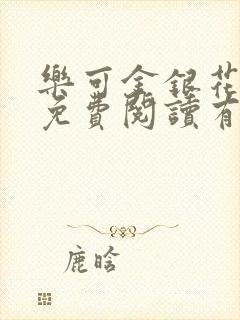 樂可金銀花
免費閱讀有
鹿晗